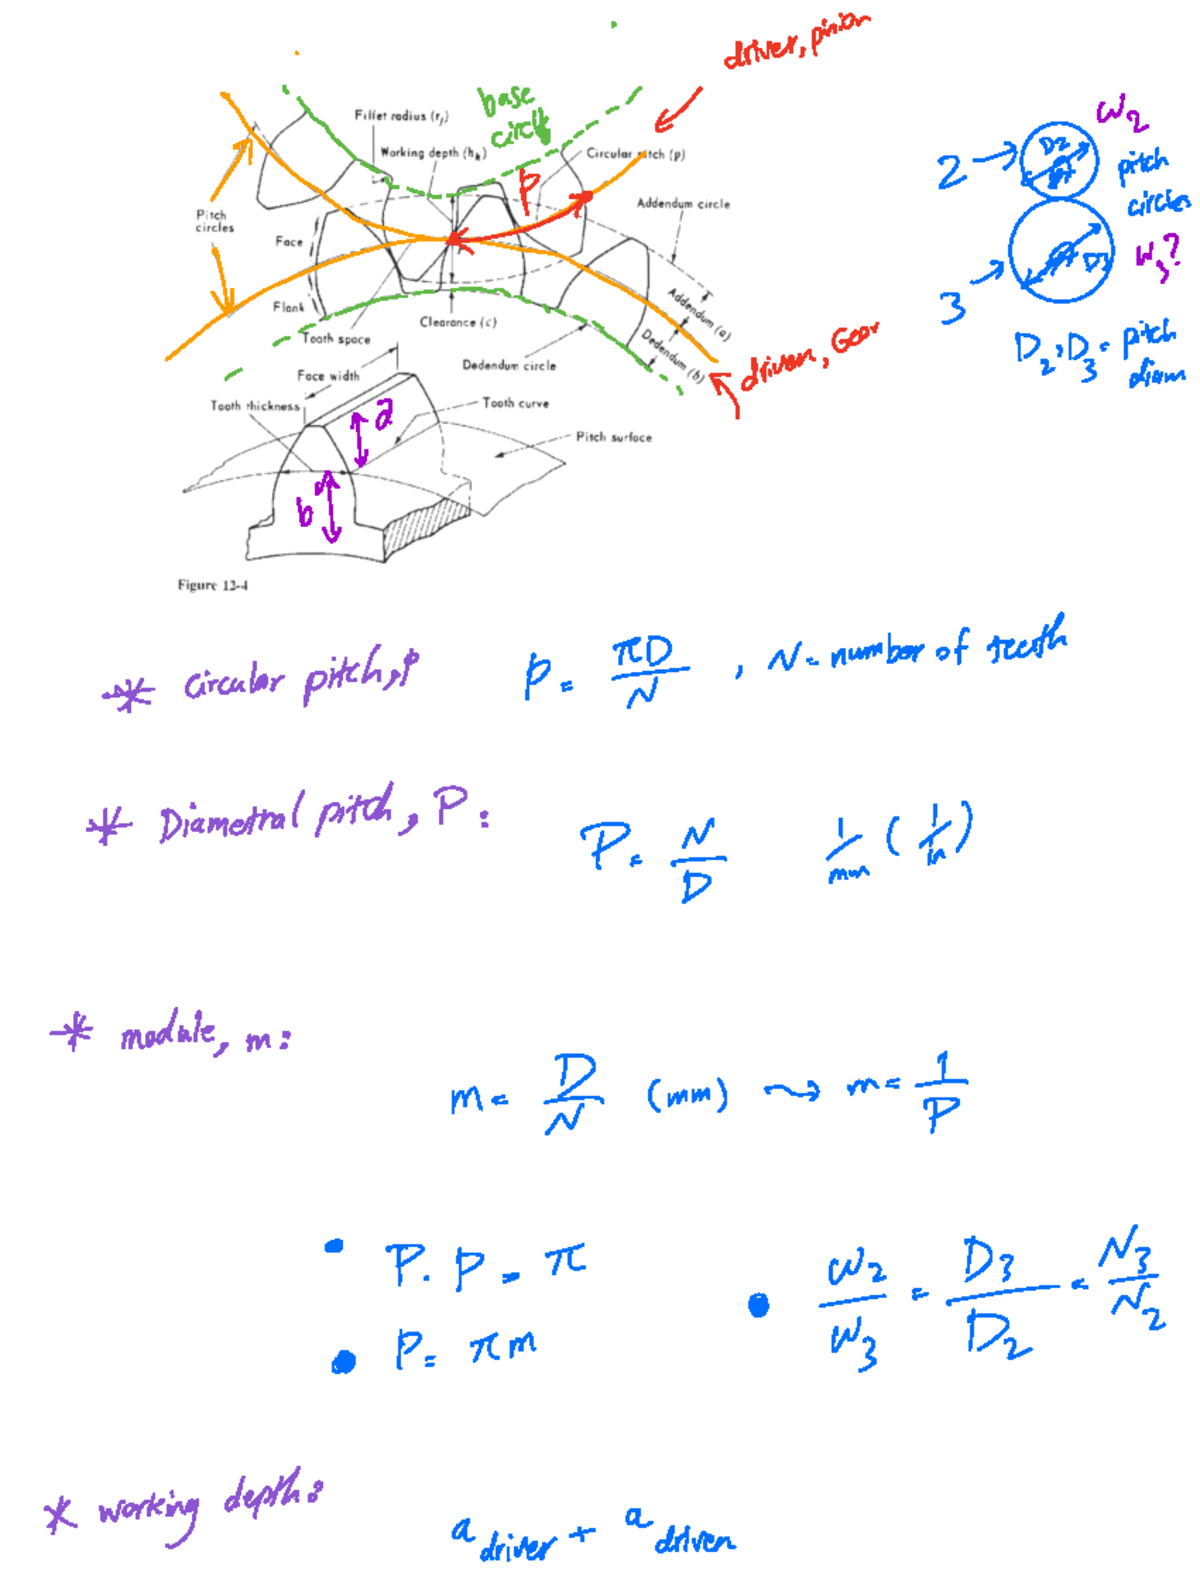 driver, pinion
base
circle
Fillet radius (rf)
Working depth (hk)
Circular pitch (p)
p
Addendum circle
Pitch
circles
Face
Flank
Tooth space
Clearance (c)
Dedendum circle
Addendum (a)
Dedendum (b)
driven, Gear
Face width
Tooth thickness
a
Tooth curve
Pitch surface
b
Figure 12-4
ω2
2
D2
pitch
circles
3
D3
ω3?
D2, D3 = pitch
diam
* Circular pitch, p
p = πD/N , N = number of teeth
* Diametral pitch, P:
P = N/D 1/mm (1/in)
* module, m:
m = D/N (mm) ⇝ m = 1/P
• P. p = π
• P = πm
• ω2/ω3 = D3/D2 = N3/N2
* working depth:
a driver + a driven